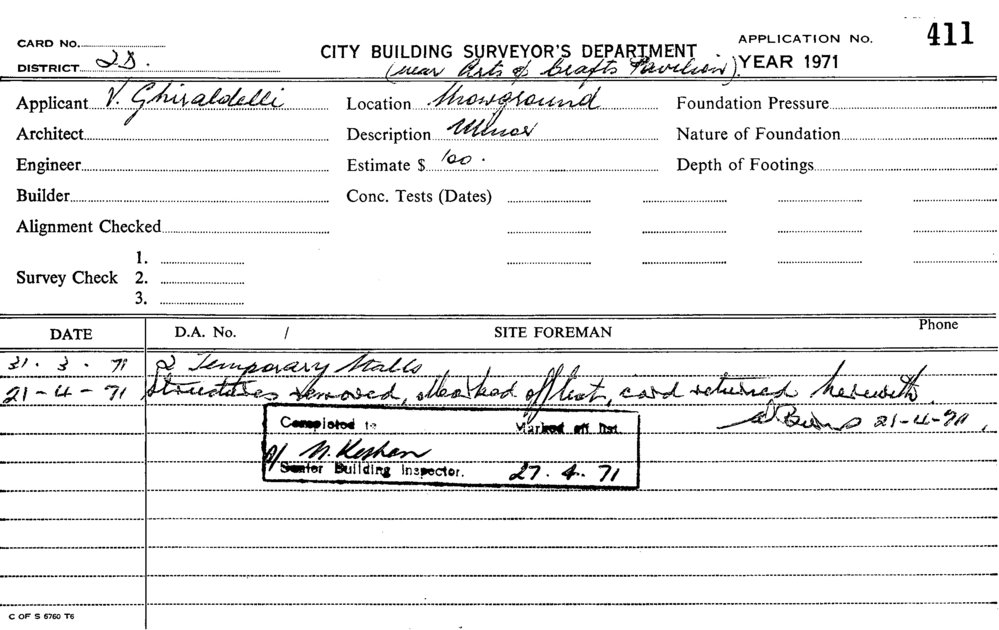 CARD No.
CITY BUILDING SURVEYOR'S DEPARTMENT
APPLICATION No. 411
DISTRICT
(near Arts & Crafts Pavilion)
YEAR 1971
Applicant V. Ghiraldelli
Location Showground
Foundation Pressure
Architect
Description Minor
Nature of Foundation
Engineer
Estimate $ 100.
Depth of Footings
Builder
Conc. Tests (Dates)
Alignment Checked
Survey Check
1.
2.
3.
DATE
D.A. No. /
SITE FOREMAN
Phone
31. 3. 71 2 Temporary Stalls
21-4-71 Structures removed, marked off list, card returned herewith.
21-4-71
Completed to
Marked off list.
Senior Building Inspector.
27. 4. 71
C OF S 6760 T6